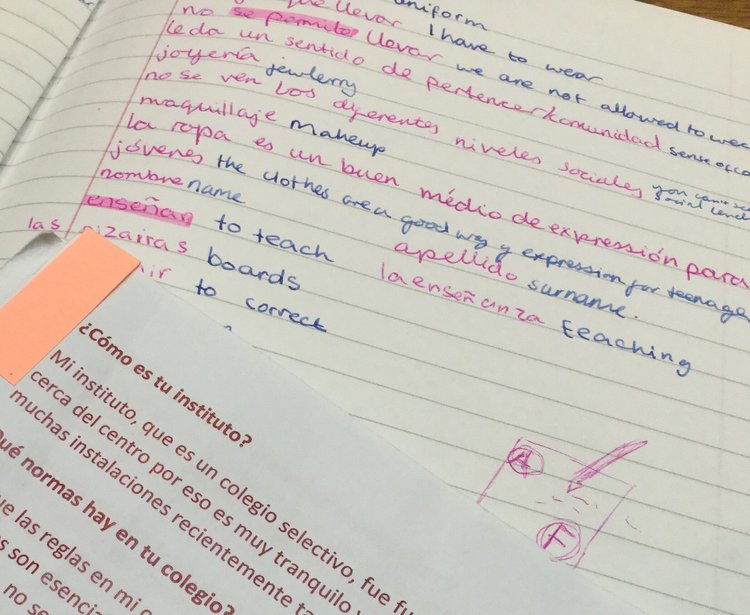 que llevar uniform I have to wear
no se permite llevar we are not allowed to wear
le da un sentido de pertencer/komunidad sense of co
joyería jewlerry
no se ven los diferentes niveles sociales you
maquillaje makeup
la ropa es un buen médio de expresión para
jóvenes the clothes are a good wy y expression for teenage
nombre name apellido surname.
enseñar to teach la enseñanza teaching
las pizairas boards
ir to correct
¿Cómo es tu instituto?
Mi instituto, que es un colegio selectivo, fue fu
cerca del centro por eso es muy tranquilo y
muchas instalaciones recientemente ta
Qué normas hay en tu colegio?
ue las reglas en mi
s son esencia
no se
A
F